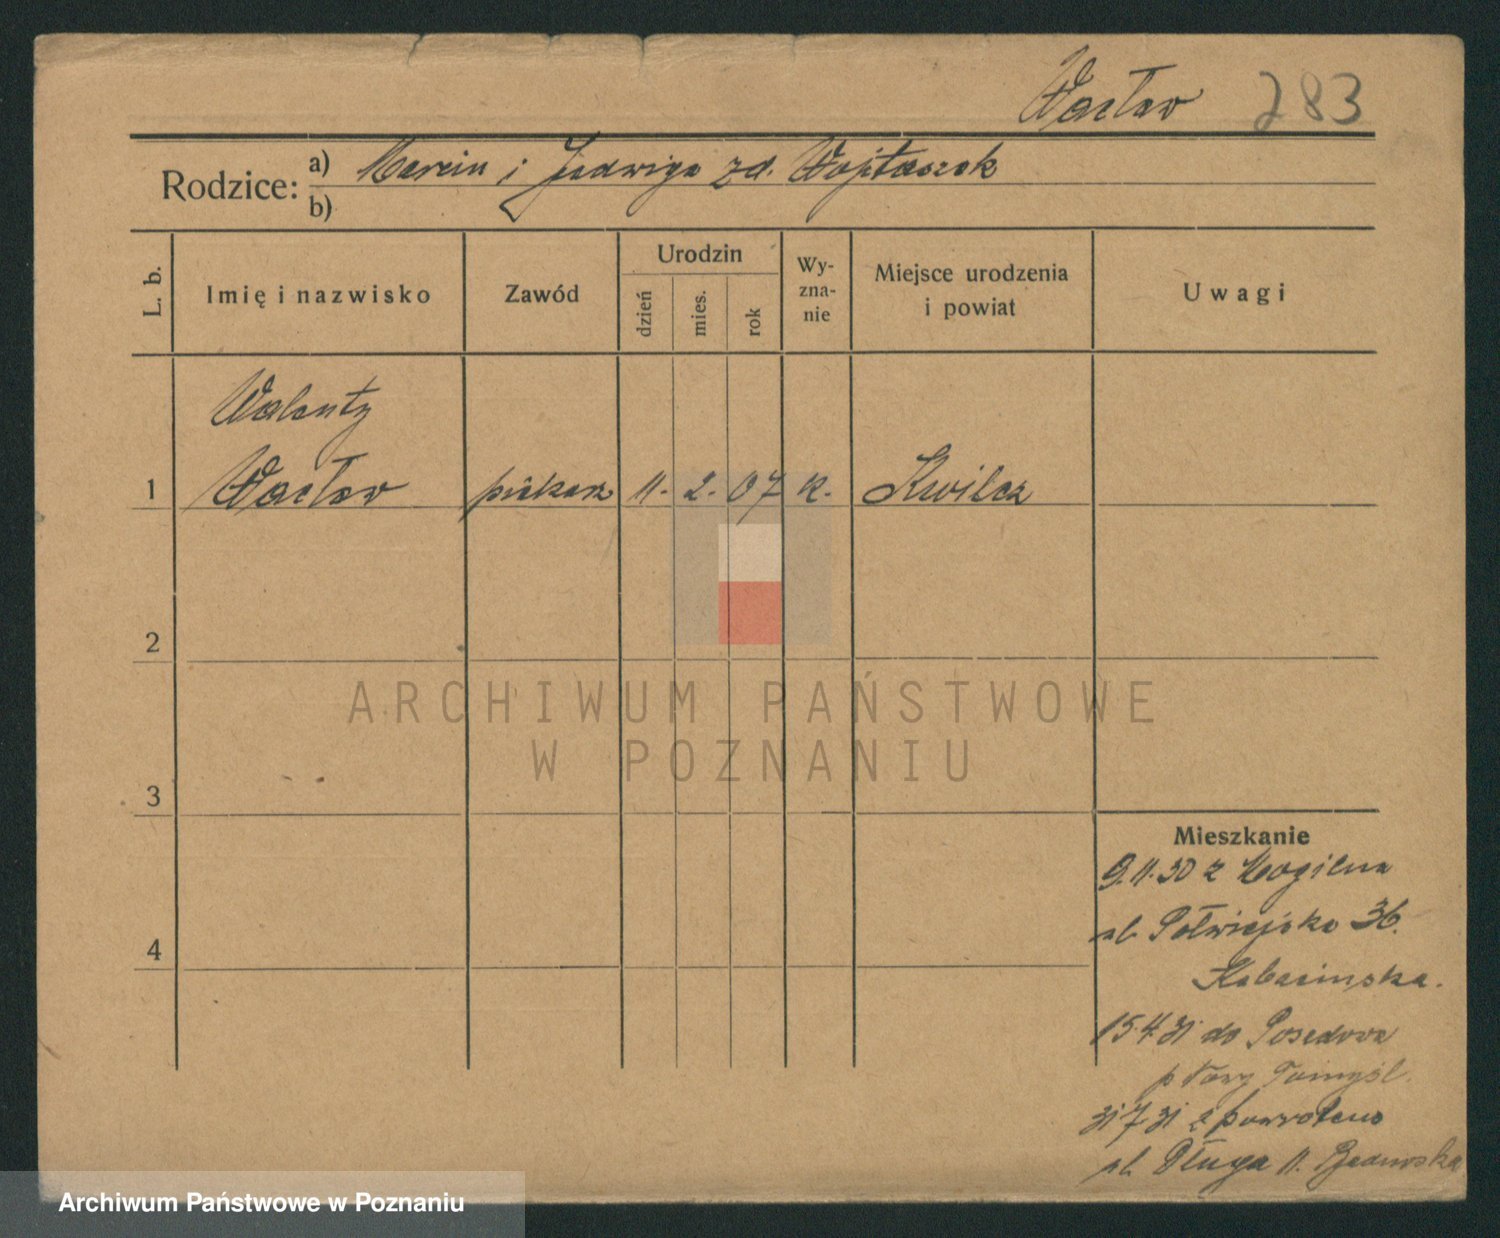 Wacław 283
Rodzice: a) Marcin i Jadwiga zd. Wojtaszek
b)
L. b.
Imię i nazwisko
Zawód
Urodzin
dzień
mies.
rok
Wy-
zna-
nie
Miejsce urodzenia
i powiat
Uwagi
Walenty
1 Wacław piekarz 11. 2. 07 k. Kwilcz
2
ARCHIWUM PAŃSTWOWE
W POZNANIU
3
4
Mieszkanie
9.11.30 z Mogilna
ul. Półwiejska 36.
Kabacinska.
15.4.31 do
p Nowy Tomyśl.
31 7 31 z powrotem
ul. Długa 11.
Archiwum Państwowe w Poznaniu